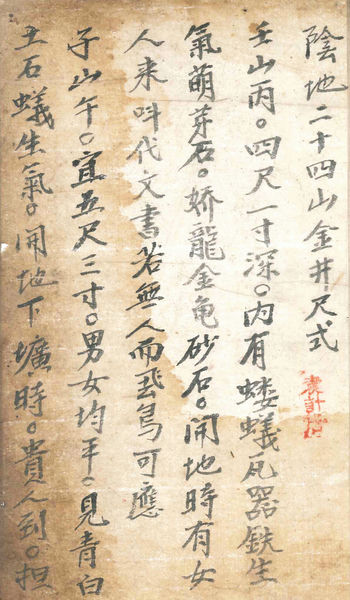 陰地二十四山金井尺式
壬山丙。四尺一寸深。內有螻蟻瓦器鉄生
氣萌芽石。娇龍金龟砂石。開地時有女
人来呌代文書若無人而飛鳥可應
子山午。宜五尺三寸。男女均平。見青白
玉石蟻生氣。開地下壙時。貴人到。担